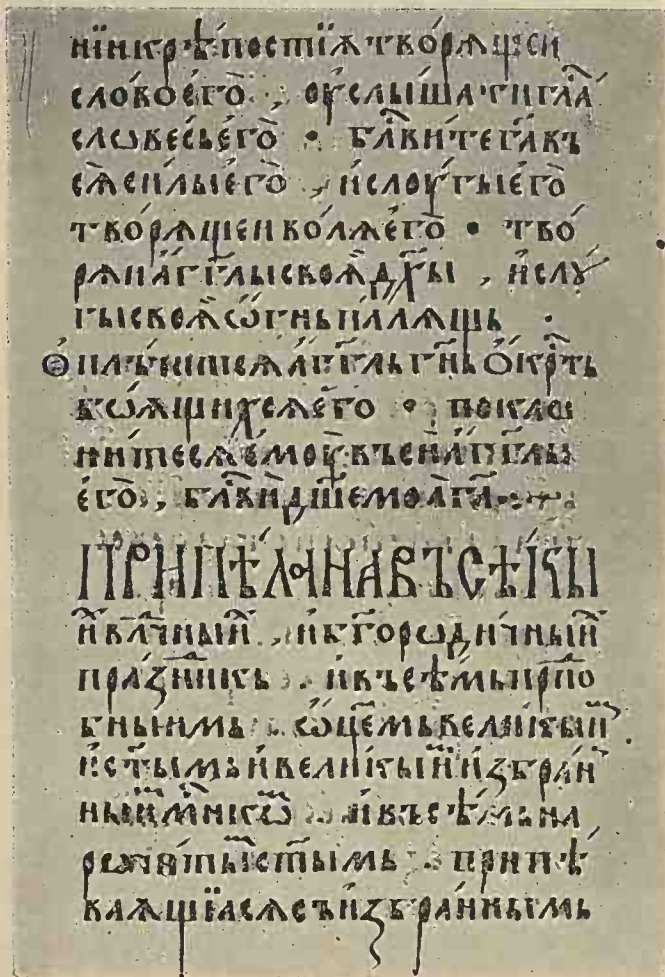 нїи крѣпостїѫ творѧщеи
слово его̀ , оуслышати гла́
слѡвесь его̀ • бл҃вите га҃ въ
сѧ̀ силы его̀ , и слоугы его̀
творѧщеи волѧ его̀ • тво
рѧи а҆гг҃лы своѧ̀ дх҃ы , и слꙋ
гы своѧ̀ ѡ҆гнь палѧщь ·
ѡпльчитсѧ а҆гг҃ль гн҃ь ѻ҆кр҃ть
боѧщихсѧ его̀ • покло
нитесѧ емоу въси а҆гг҃лы
его̀ , бл҃ви дш҃е моа̀ га҃
ПРИПѢЛА НА ВЪСѢКЫ
и҆ вл҃чныи , и҆ б҃городичныи
празникь . и҆ въсѣмь прпⷣо
бнымь ѡ҆цемь великыи
и҆ ст҃ымь и҆ великыи и҆збран
ныи мн҃икѡ . и҆ въсѣмь на
рочитыи ст҃ымь . припѣ
ваѧщїасѧ съ и҆збраннымь